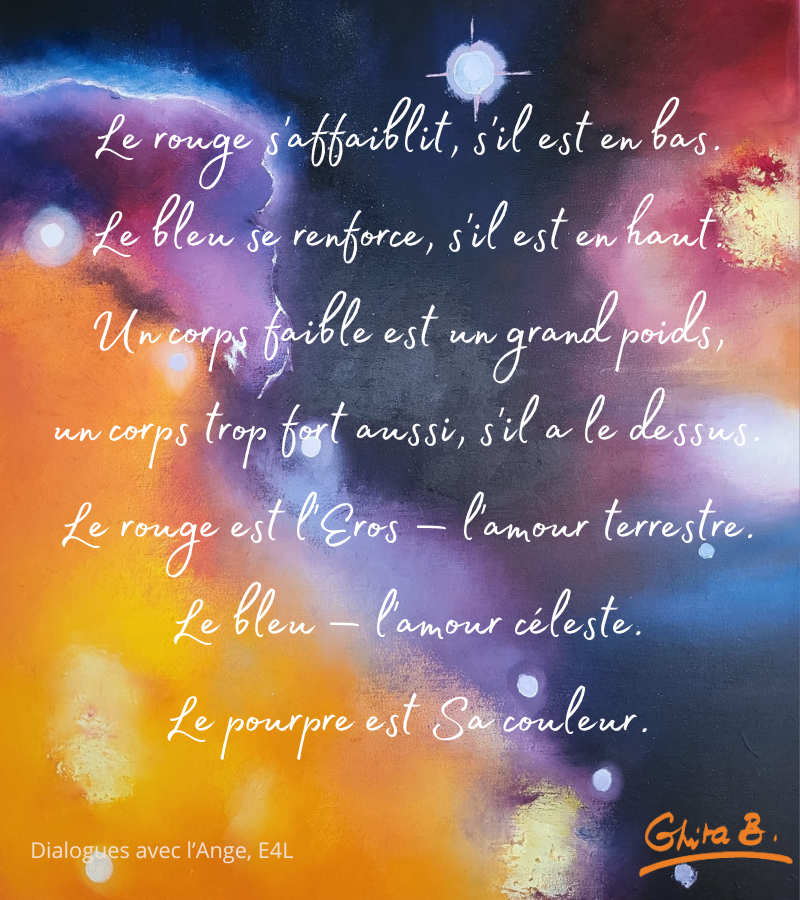 Le rouge s'affaiblit, s'il est en bas.
Le bleu se renforce, s'il est en haut.
Un corps faible est un grand poids,
un corps trop fort aussi, s'il a le dessus.
Le rouge est l'Eros – l'amour terrestre.
Le bleu – l'amour céleste.
Le pourpre est Sa couleur.
Dialogues avec l’Ange, E4L
Ghita B.